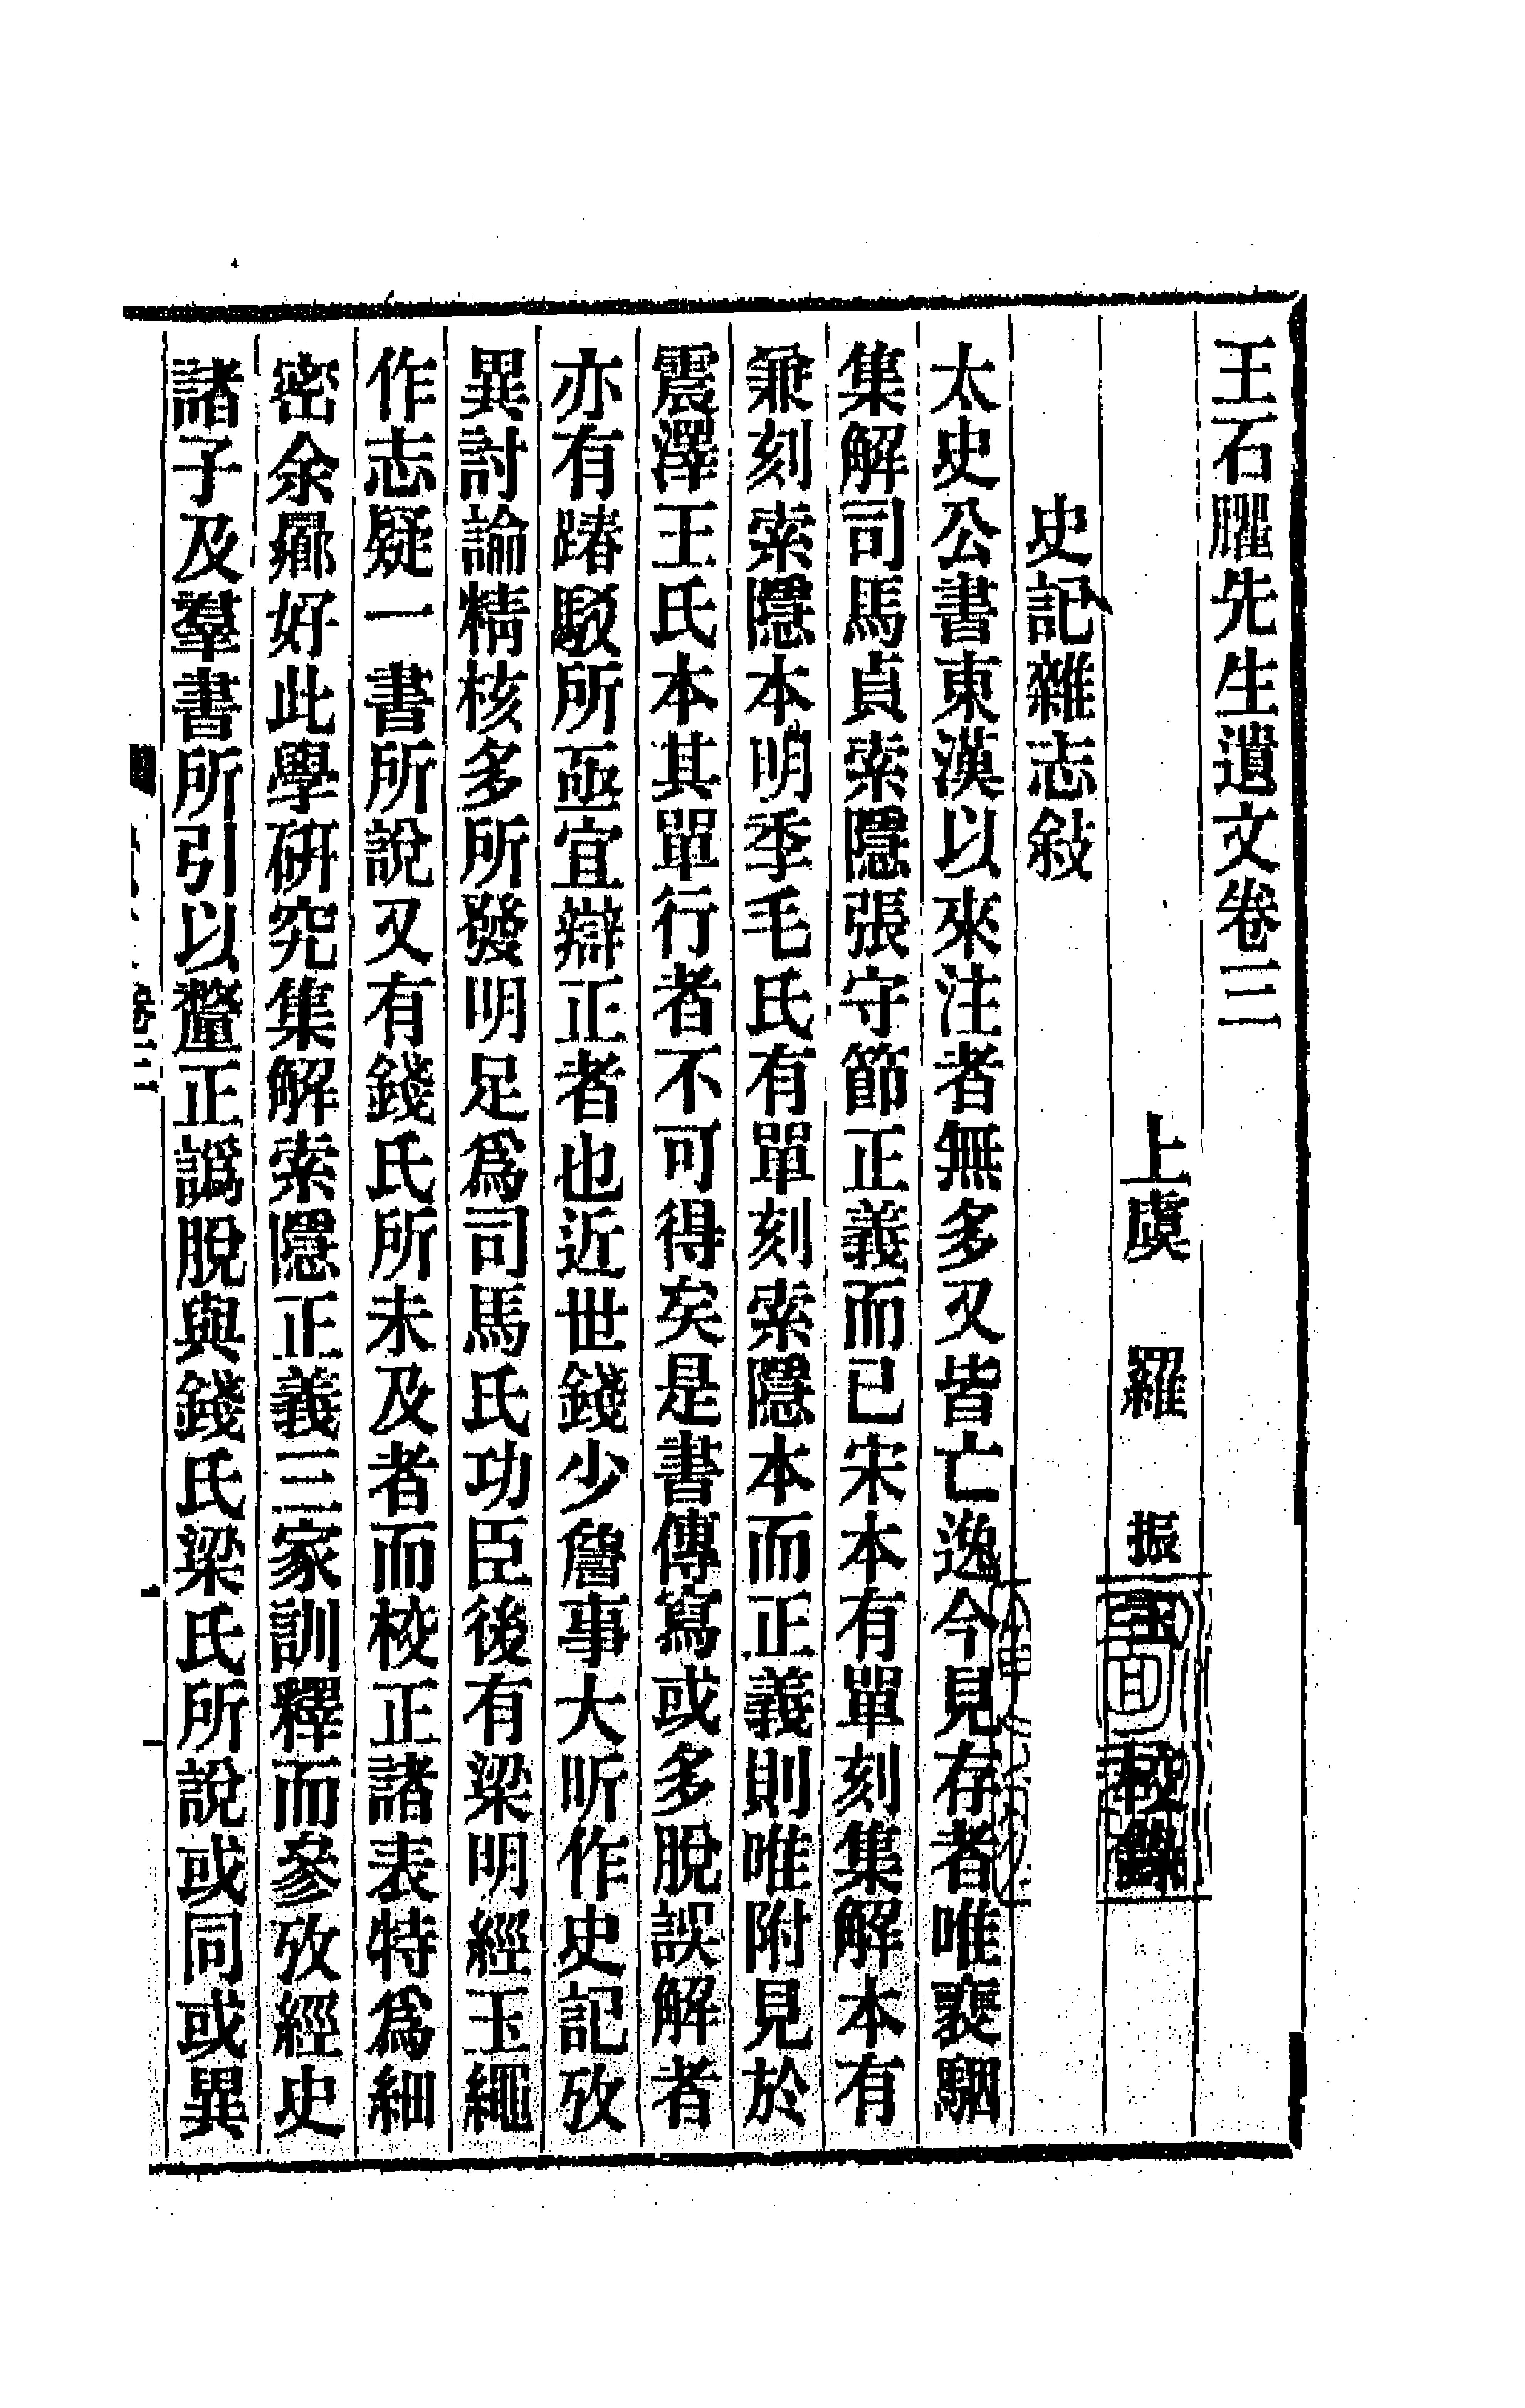 王石臞先生遺文卷三
上虞 羅 振玉 校錄
史記雜志敍
太史公書東漢以來注者無多又皆亡逸今見存者唯裴駰
集解司馬貞索隱張守節正義而已宋本有單刻集解本有
兼刻索隱本明季毛氏有單刻索隱本而正義則唯附見於
震澤王氏本其單行者不可得矣是書傳寫或多脫誤解者
亦有踳駁所亟宜辯正者也近世錢少詹事大昕作史記攷
異討論精核多所發明足爲司馬氏功臣後有梁明經玉繩
作志疑一書所說又有錢氏所未及者而校正諸表特爲細
密余曏好此學硏究集解索隱正義三家訓釋而參攷經史
諸子及羣書所引以釐正譌脫與錢氏梁氏所說或同或異
卷三